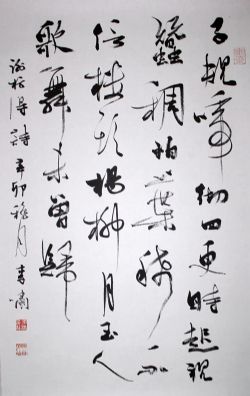 子規啼徹四更時起視
蠶稠怕葉稀不
信樓頭楊柳月玉人
歌舞未曾歸
謝枋得詩 辛卯穐月 李嘯